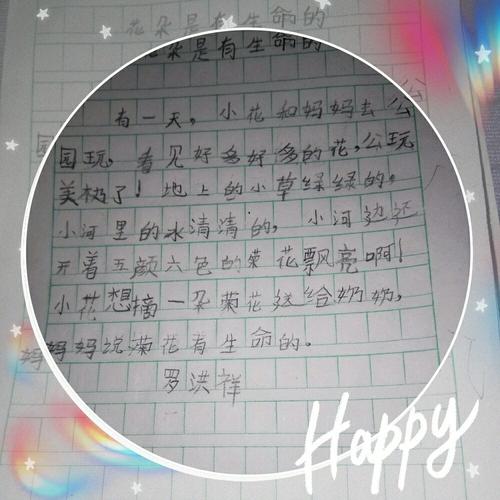 花朵是有生命的
花朵是有生命的
有一天，小花和妈妈去公
园玩，看见好多好多的花，公玩
美极了！地上的小草绿绿的。
小河里的水清清的，小河边还
开着五颜六色的菊花飘亮啊！
小花想摘一朵菊花送给奶奶，
妈妈妈说菊花有生命的。
罗洪祥
Happy